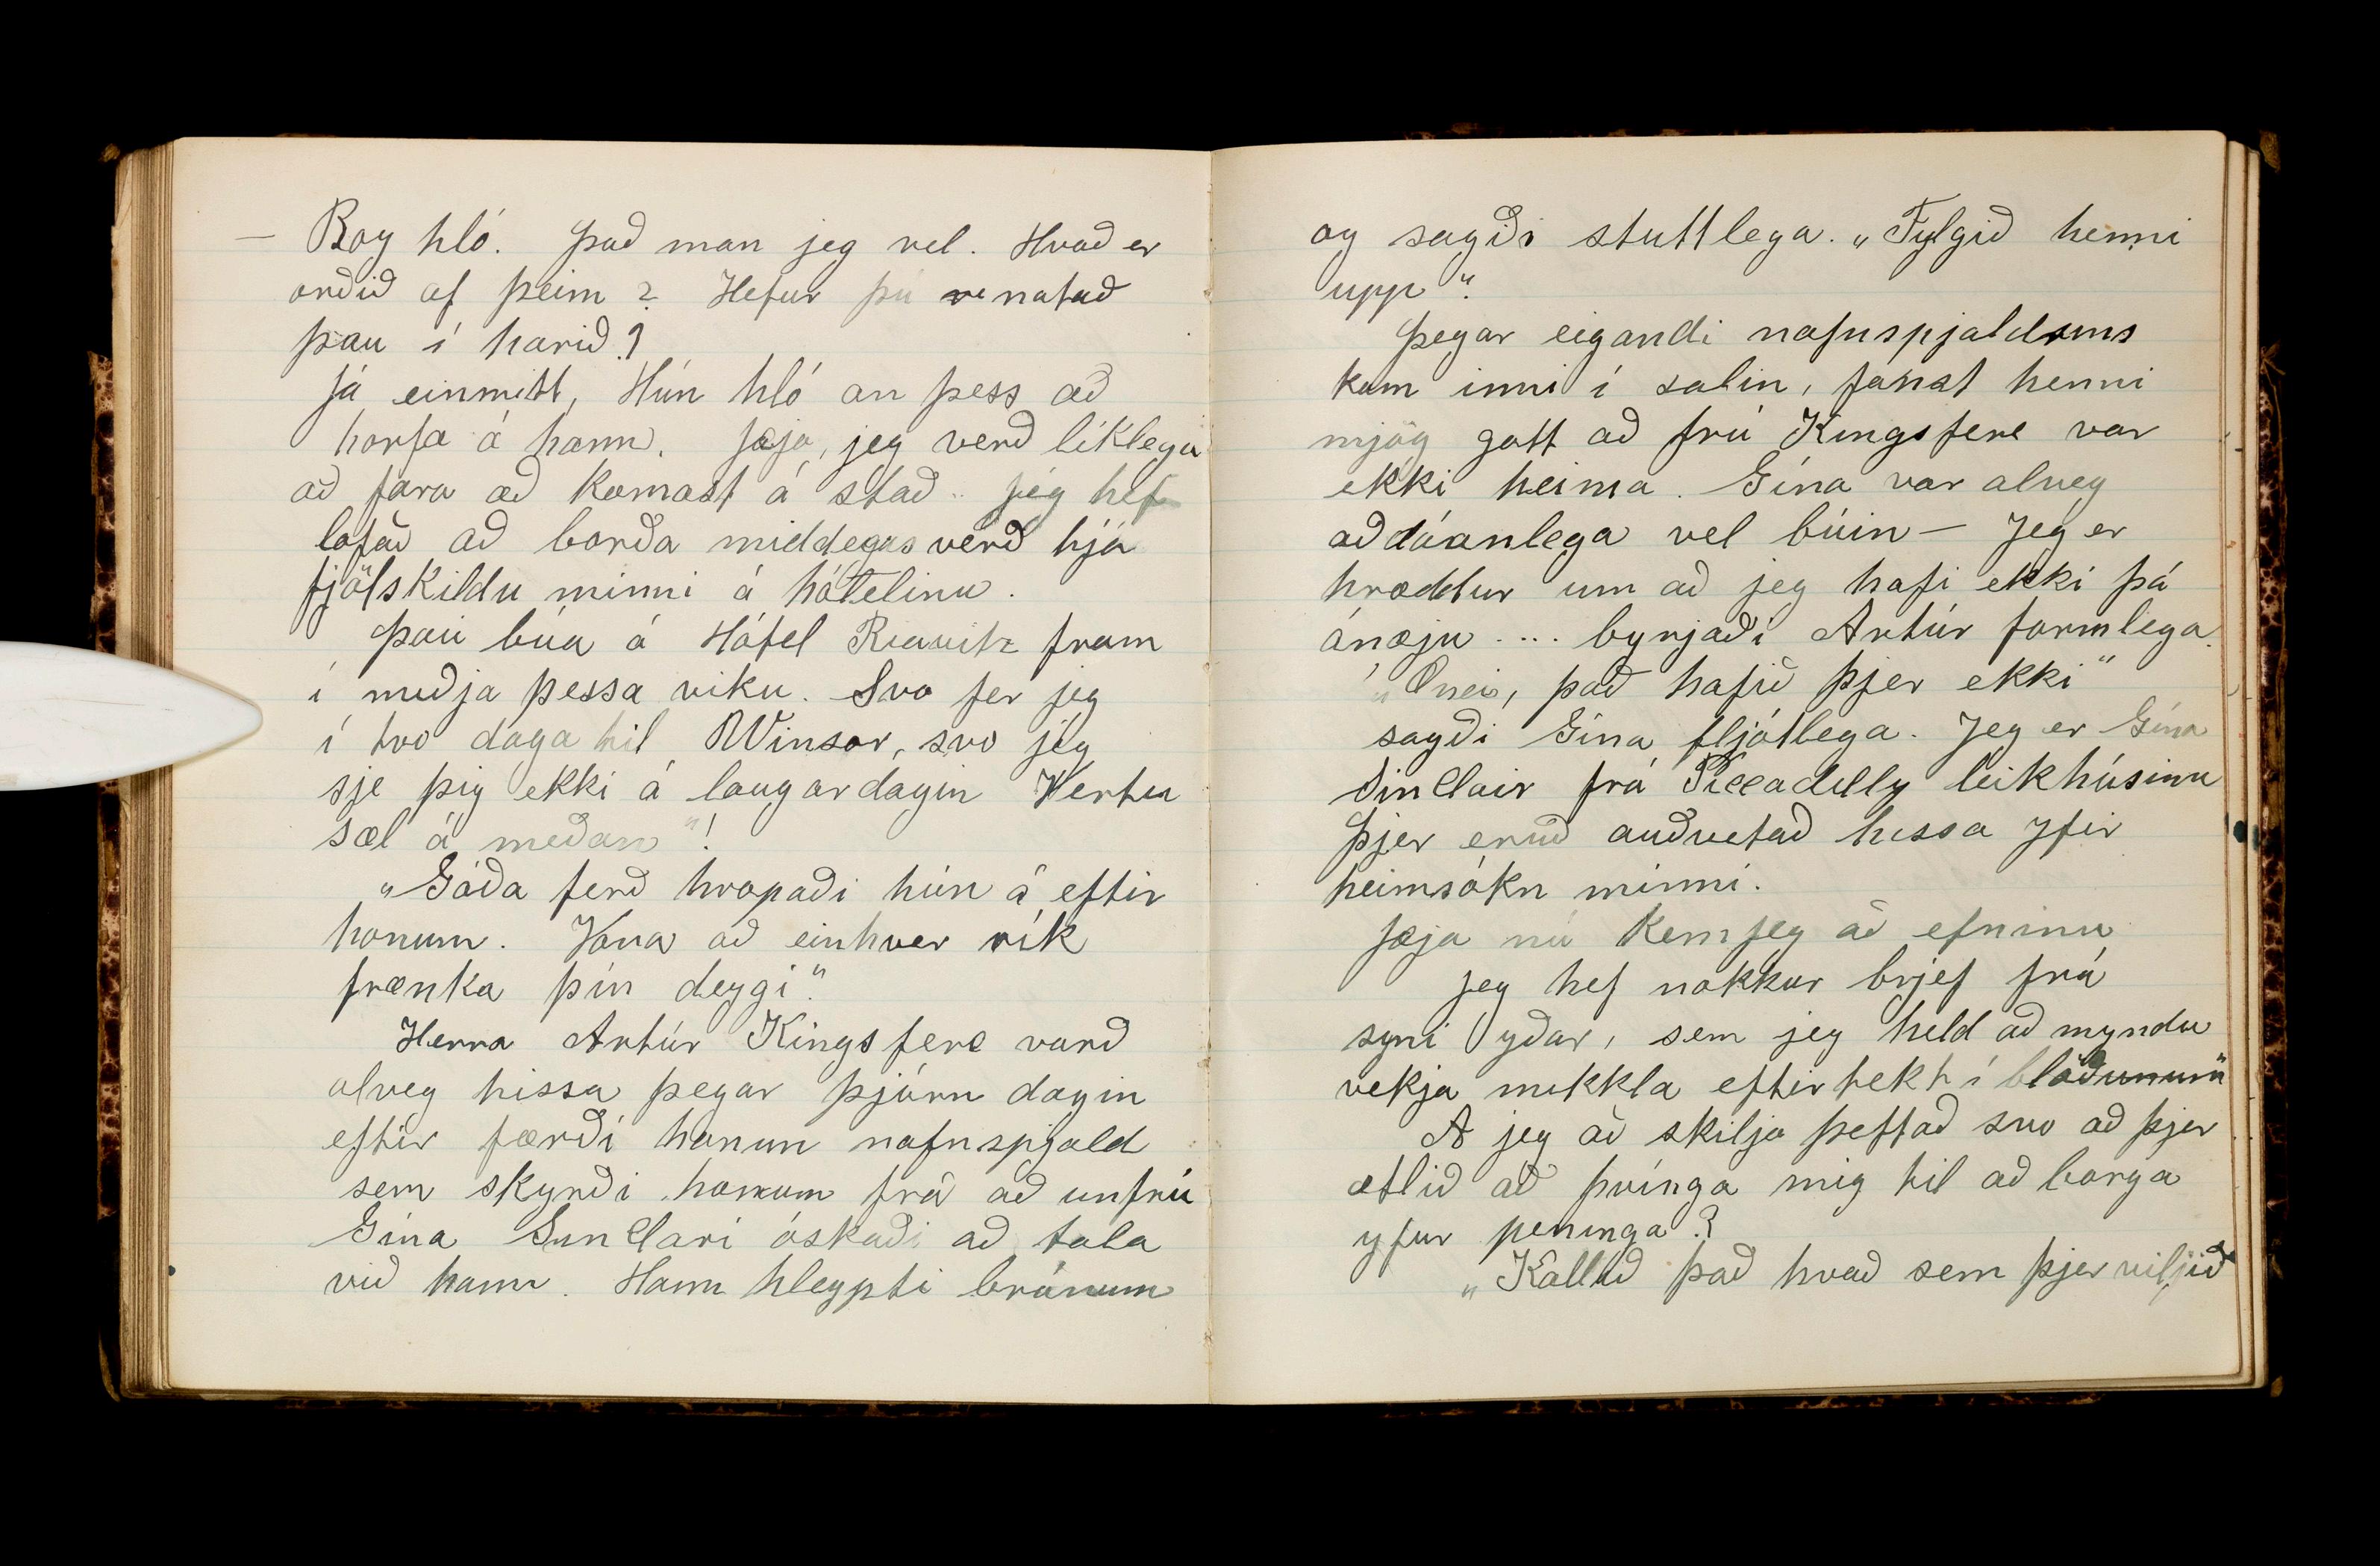 — Roy hló. Það man jeg vel. Hvað er
orðið af þeim? Hefur þú notað
þau í hárið?
Já einmitt, Hún hló án þess að
horfa á hann. Jæja, jeg verð líklega
að fara að komast á stað. jeg hef
lofað að borða middegasverð hjá
fjölskildu minni á hótelinu.
Þau búa á Hótel Riavitz fram
í miðja þessa viku. Svo fer jeg
í tvo daga til Winsor, svo jeg
sje þig ekki á laugardagin Vertu
sæl á meðan"!
„Góða ferð hropaði hún á eftir
honum. Vona að einhver rík
frænka þín deygi".
Herra Artúr Kingsfere varð
alveg hissa þegar þjónn dagin
eftir færði honun nafnspjald
sem skyrði honum frá að unfrú
Gína Sinclari óskaði að tala
við hann. Hann hleypti brúnum
og sagði stuttlega. „Fylgið henni
upp".
Þegar eigandi nafnspjaldsins
kom inni í salin, fanst henni
mjög gott að frú Kingsfere var
ekki heima. Gína var alveg
aðdáanlega vel búin — Jeg er
hræddur um að jeg hafi ekki þá
ánæju .... byrjaði Artúr formlega.
„Ónei, það hafið þjer ekki"
sagði Gína fljótlega. Jeg er Gína
Sinclair frá Piccadilly leikhúsinu
Þjer eruð auðvetað hissa yfir
heimsókn minni.
Jæja nú kem jeg að efninu
Jeg hef nokkur brjef frá
syni yðar, sem jeg held að myndu
vekja mikkla eftirtekt í blöðunum"
A jeg að skilja þettað svo að þjer
ætlið að þvínga mig til að borga
yfur peninga?
„Kallið það hvað sem þjer viljið